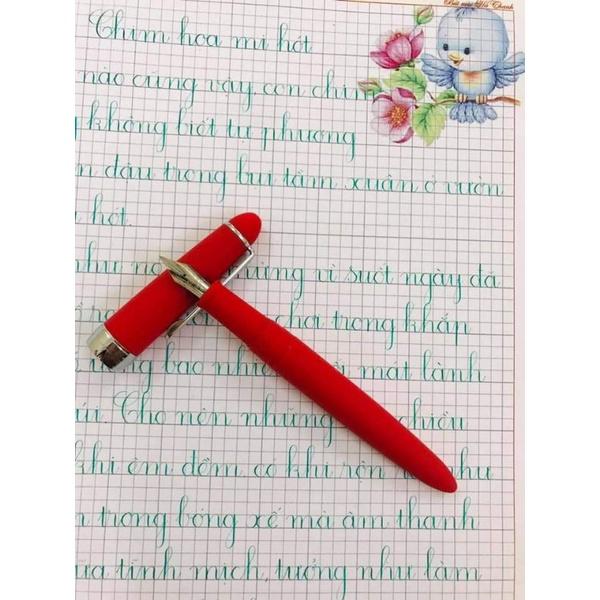 Thanh
Chim hoạ mi hót
nào cũng vậy, con chim
không biết tự phương
đậu trong bụi tầm xuân ở vườn
hót.
như vì suốt ngày đã
chơi trong khắp
bao mát lành
Cho nên những chiều
khi êm đềm, có khi rộn như
trong bóng xế mà âm thanh
tĩnh mịch, tưởng như làm